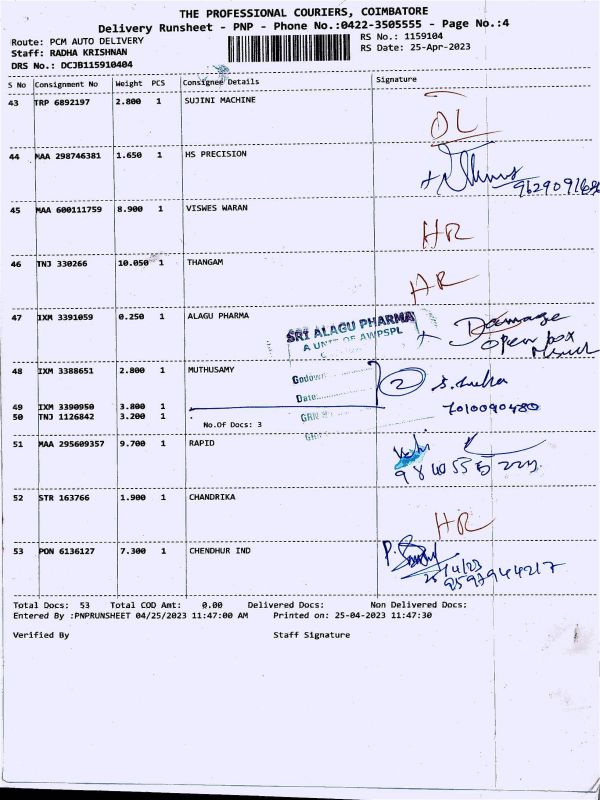 THE PROFESSIONAL COURIERS, COIMBATORE
Delivery Runsheet - PNP - Phone No.:0422-3505555 - Page No.:4
Route: PCM AUTO DELIVERY
RS No.: 1159104
Staff: RADHA KRISHNAN
RS Date: 25-Apr-2023
DRS No.: DCJB115910404
S No Consignment No Weight PCS Consignee Details Signature
43 TRP 6892197 2.800 1 SUJINI MACHINE
DL
44 MAA 298746381 1.650 1 HS PRECISION
45 MAA 600111759 8.900 1 VISWES WARAN
HR
46 TNJ 330266 10.050 1 THANGAM
HR
47 IXM 3391059 0.250 1 ALAGU PHARMA
SRI ALAGU PHARMA
A UNIT OF AWPSPL
Damage
open box
48 IXM 3388651 2.800 1 MUTHUSAMY
Godown
Date
2
7010090480
49 IXM 3390950 3.800 1
50 TNJ 1126842 3.200 1
No.Of Docs: 3
GRN
51 MAA 295609357 9.700 1 RAPID
52 STR 163766 1.900 1 CHANDRIKA
HR
53 PON 6136127 7.300 1 CHENDHUR IND
25/4/23
Total Docs: 53 Total COD Amt: 0.00 Delivered Docs: Non Delivered Docs:
Entered By :PNPRUNSHEET 04/25/2023 11:47:00 AM Printed on: 25-04-2023 11:47:30
Verified By Staff Signature